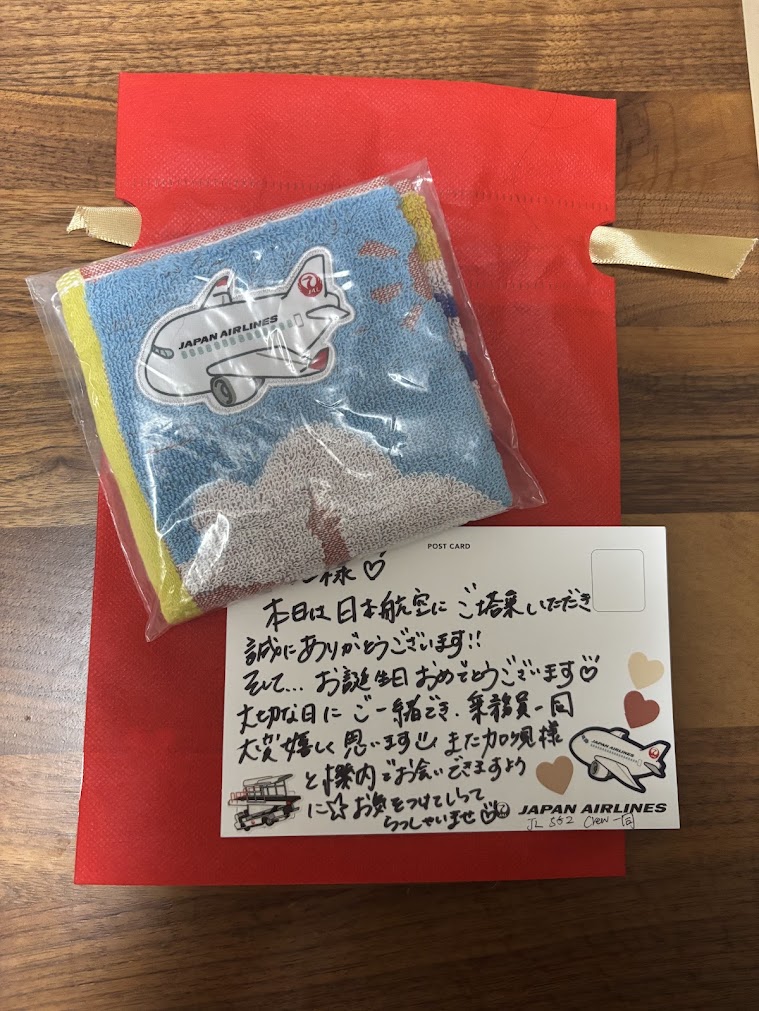 JAL
JAPAN AIRLINES
POST CARD
様♡
本日は日本航空にご塔乗いただき
誠にありがとうございます!!
そして... お誕生日おめでとうございます♡
大切な日にご一緒でき、乗務員一同
大変嬉しく思います また加須様
と機内でお会いできますよう
に☆お気をつけていってらっしゃいませ♡
JAPAN AIRLINES
JAPAN AIRLINES
Crew一同